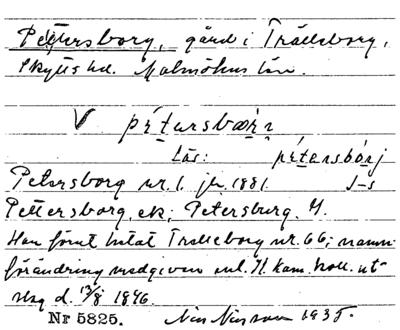 Pettersborg, gård i Trälleborg,
Skytts hd. Malmöhus län.
V pi̱tərsbœ̱r̨
Läs: pi̱tersbo̱rj
Petersborg nr. 1. jb. 1881. J-s
Pettersborg, ek; Petersburg, H.
Har förut hetat Trälleborg nr. 66; namn-
förändring medgiven enl. K. kam. koll. ut-
slag d. 13/8 1846.
Nr 5825. Nils Nilsson 1935.